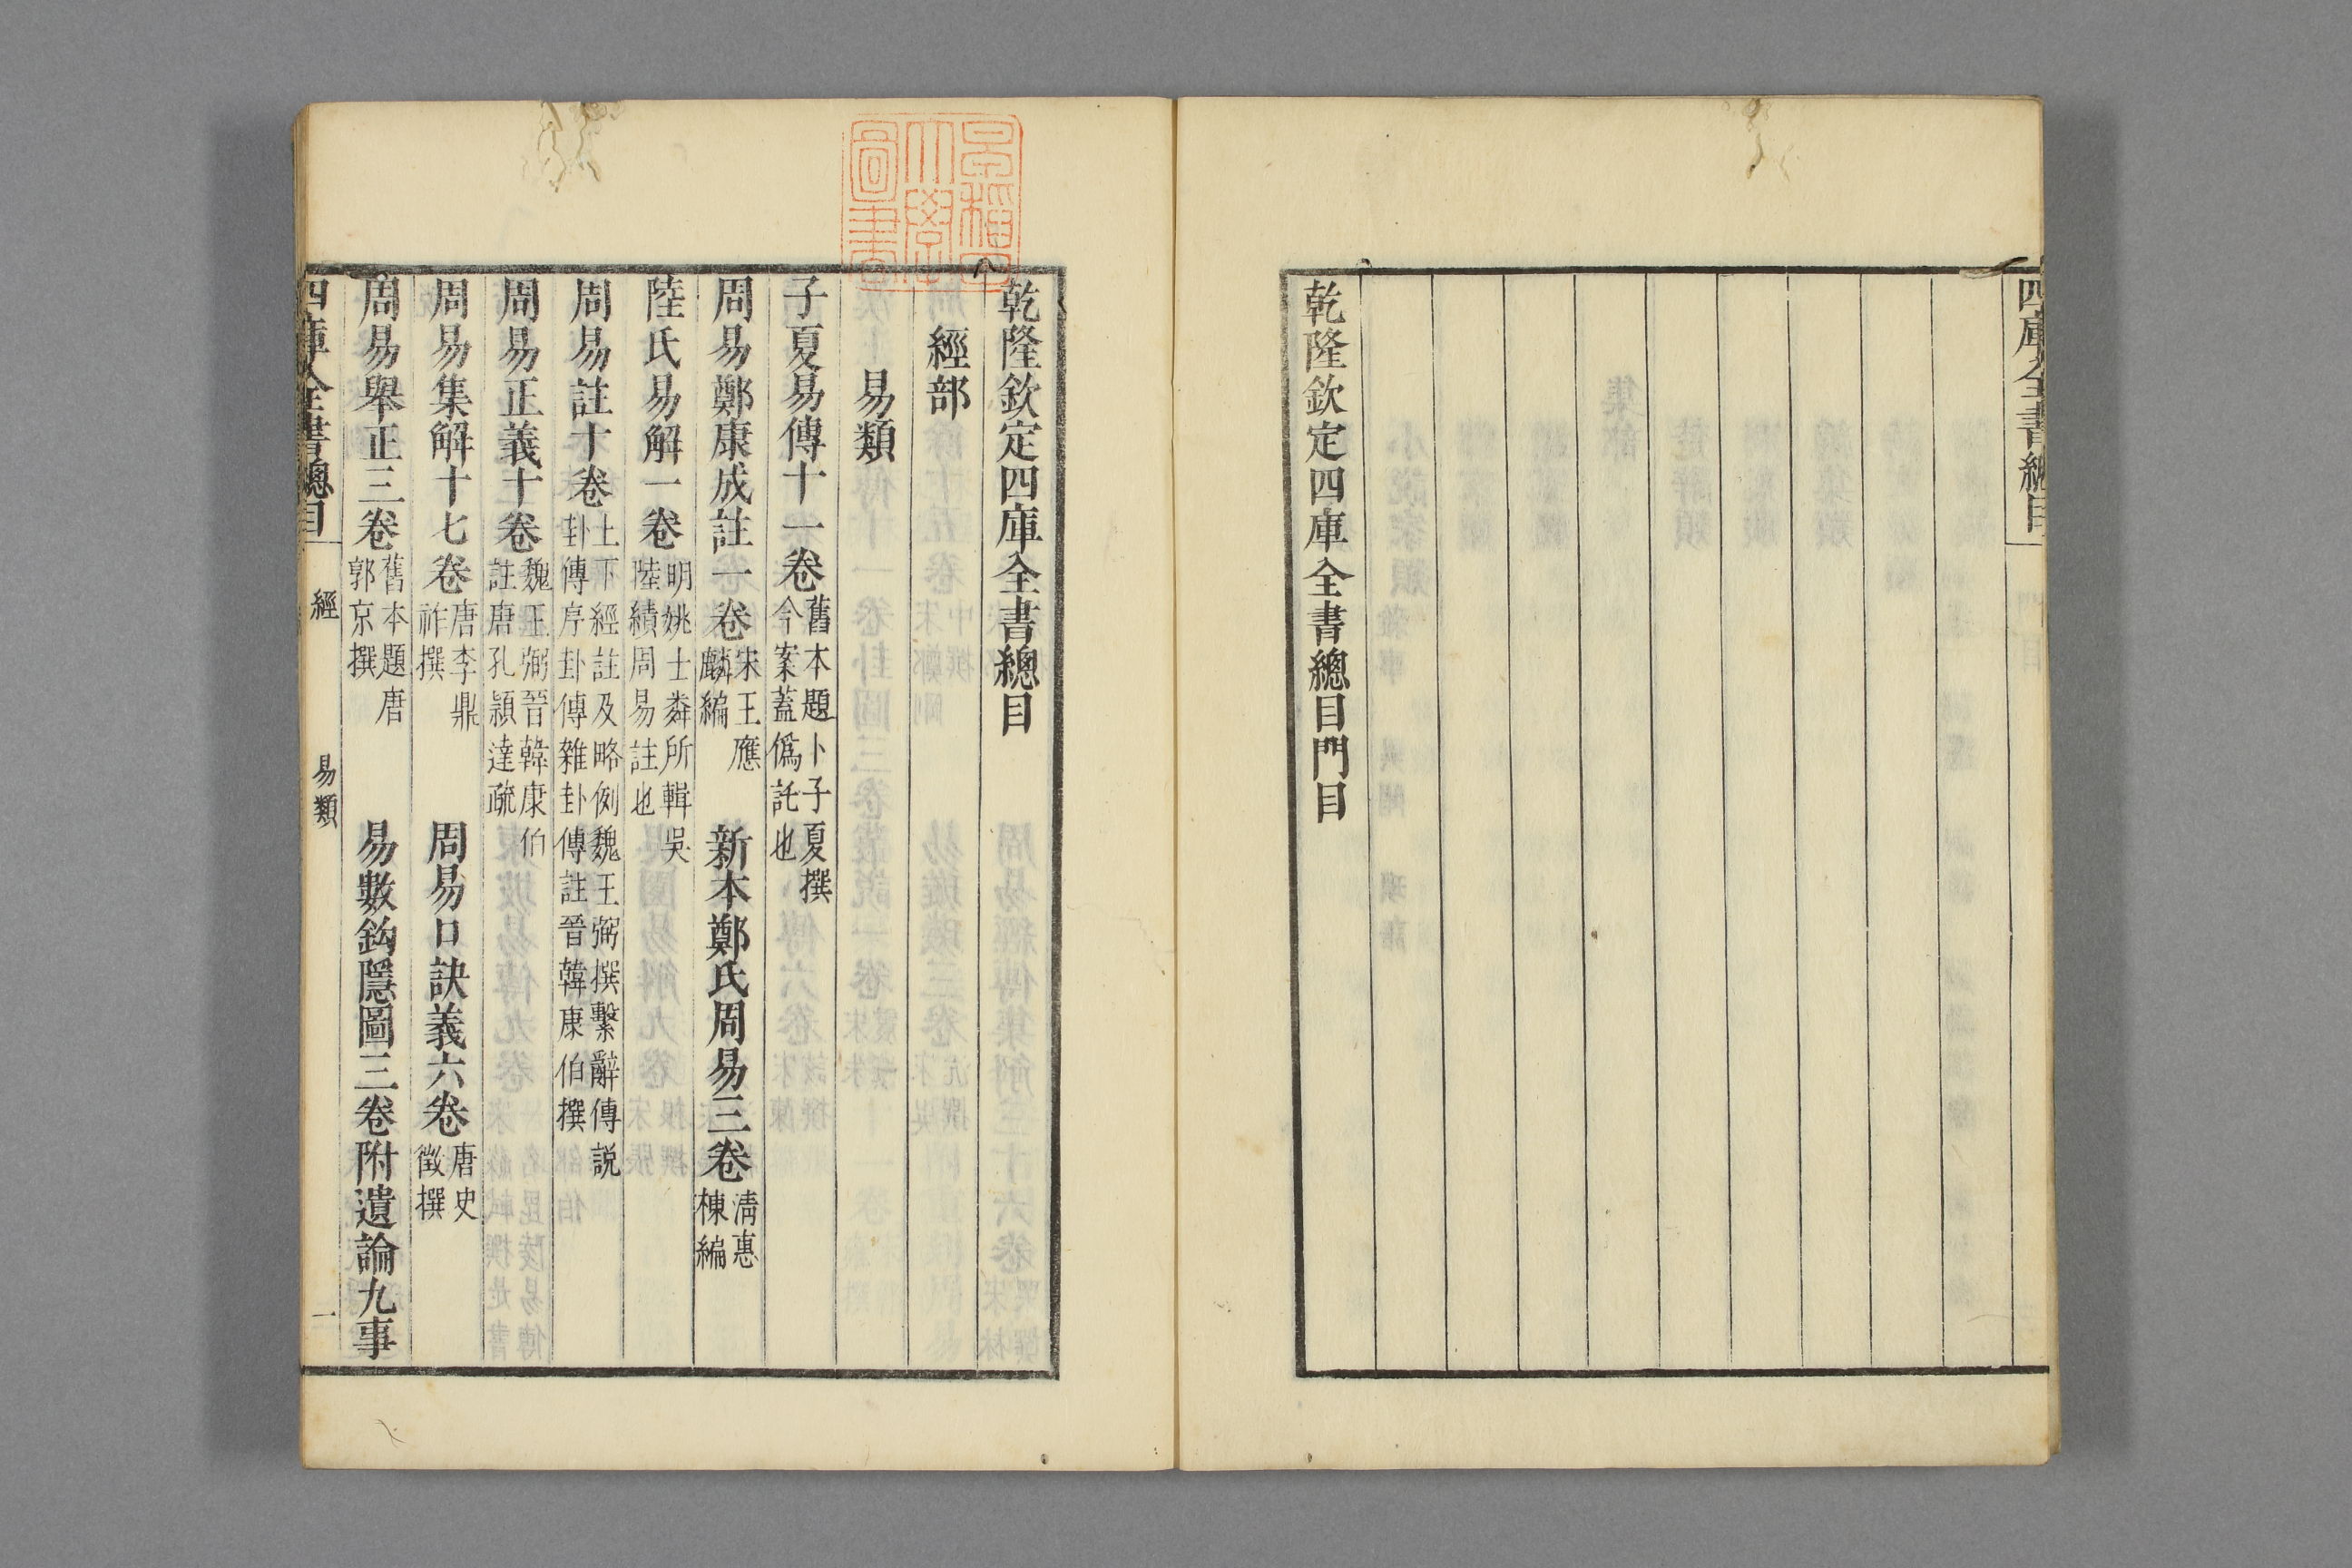 四庫全書總目
乾隆欽定四庫全書總目門目
早稻田大學圖書
乾隆欽定四庫全書總目
經部
易類
子夏易傳十一卷 舊本題卜子夏撰今案蓋僞託也
周易鄭康成註一卷 宋王應麟編 新本鄭氏周易三卷 清惠棟編
陸氏易解一卷 明姚士粦所輯吳陸績周易註也
周易註十卷 上下經註及略例魏王弼撰繫辭傳說卦傳序卦傳雜卦傳註晉韓康伯撰
周易正義十卷 魏王弼晉韓康伯註唐孔穎達疏
周易集解十七卷 唐李鼎祚撰 周易口訣義六卷 唐史徵撰
周易舉正三卷 舊本題唐郭京撰 易數鈎隱圖三卷附遺論九事
四庫全書總目 經 易類 一